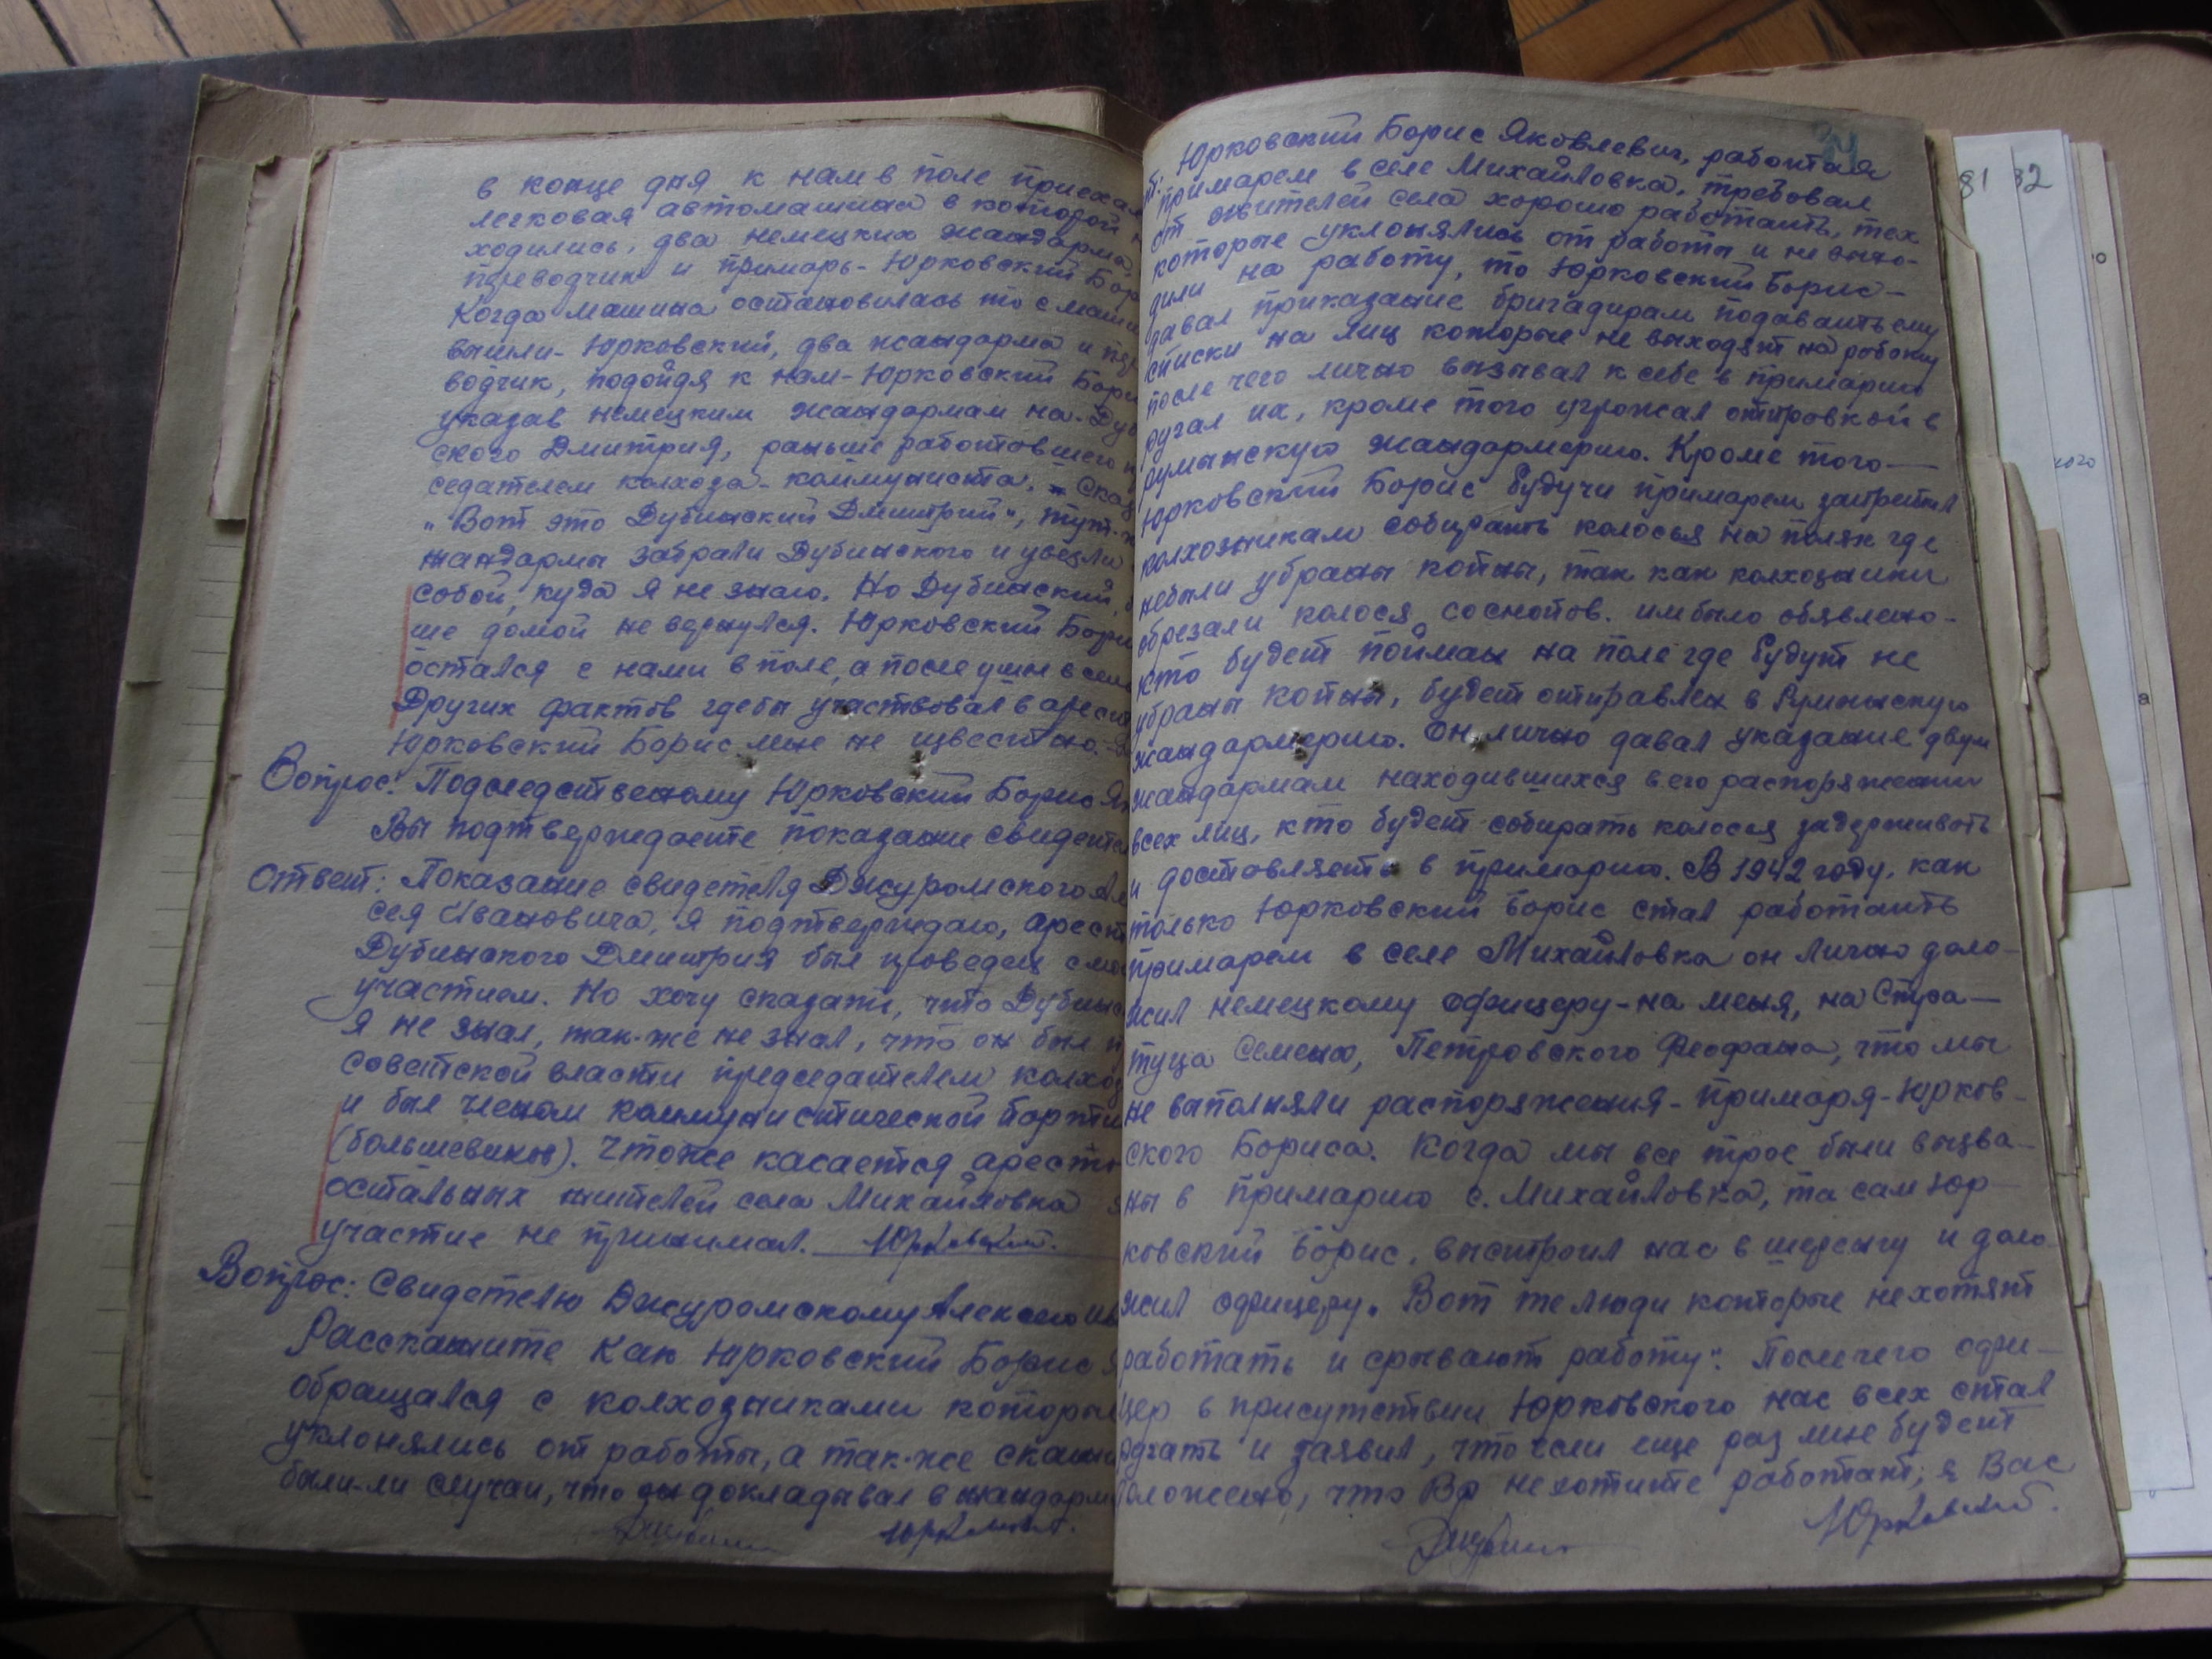 в конце дня к нам в поле приехал
легковая автомашина в которой н
ходились, два немецких жандарма,
переводчик и примарь- Юрковский Бор
Когда машина остановилась то с маши
вышли- Юрковский, два жандарма и пер
водчик, подойдя к нам- Юрковский Бори
указав немецким жандармам на- Дуб
ского Дмитрия, раньше работовшего п
седателем колхоза- коммуниста, Сказ
"Вот это Дубинский Дмитрий", тут-ж
жандармы забрали Дубинского и увезли
собой, куда я не знаю. Но Дубинский,
ше домой не вернулся. Юрковский Бори
остался с нами в поле, а после ушел в село
Других фактов где бы участвовал в арест
Юрковский Борис мне не известно.
Вопрос: Подследственому Юрковский Борис Як
Вы подтверждаете показание свидетел
Ответ: Показание свидетеля Джуромского Але
сея Ивановича, я подтверждаю, арест
Дубинского Дмитрия был проведен с мои
участием. Но хочу сказать, что Дубинс
я не знал, так-же не знал, что он был п
советской власти председателем колхоз
и был членом коммунистической партии
(большевиков). Что же касается аресто
остальных жителей села Михайловка я
участие не принимал. Юрковский.
Вопрос: Свидетелю Джуромскому Алексею Ив
Расскажите как Юрковский Борис Я
обращался с колхозниками которые
уклонялись от работы, а так-же скажи
были-ли случаи, что он докладывал в жандарм
Юрковский.
81 32
от: Юрковский Борис Яковлевич, работая
примарем в селе Михайловка, требовал
от жителей села хорошо работать, тех
которые уклонялись от работы и не выхо-
дили на работу, то Юрковский Борис-
давал приказание бригадирам подавать ему
списки на лиц которые не выходят на роботу
после чего лично вызывал к себе в примарию
ругал их, кроме того угрожал отправкой в
румынскую жандармерию. Кроме того—
Юрковский Борис будучи примарем запретил
колхозникам собирать колосья на полях где
небыли убраны копны, так как колхозники
обрезали колося соснопов. им было обявлено-
кто будет пойман на поле где будут не
убраны копны, будет отправлен в Румынскую
жандармерию. Он лично давал указание двум
жандармам находившихся в его распоряжении
всех лиц, кто будет собирать колося задерживать
и доставлять в примарию. В 1942 году, как
только Юрковский Борис стал работать
примарем в селе Михайловка он лично доло-
жил немецкому офицеру- на меня, на Стра—
туца Семена, Петровского Феофана, что мы
не выполняли распоряжения- примаря- Юрков-
ского Бориса. Когда мы все трое были вызва-
ны в примарию с. Михайловка, та сам Юр—
ковский Борис, выстроил нас в шеренгу и доло
жил офицеру. Вот те люди которые нехотят
работать и срывают работу". После чего офи—
цер в присутствии Юрковского нас всех стал
ругать и заявил, что если еще раз мне будет
доложено, что Вы не хотите работат, я Вас
Юрковский.